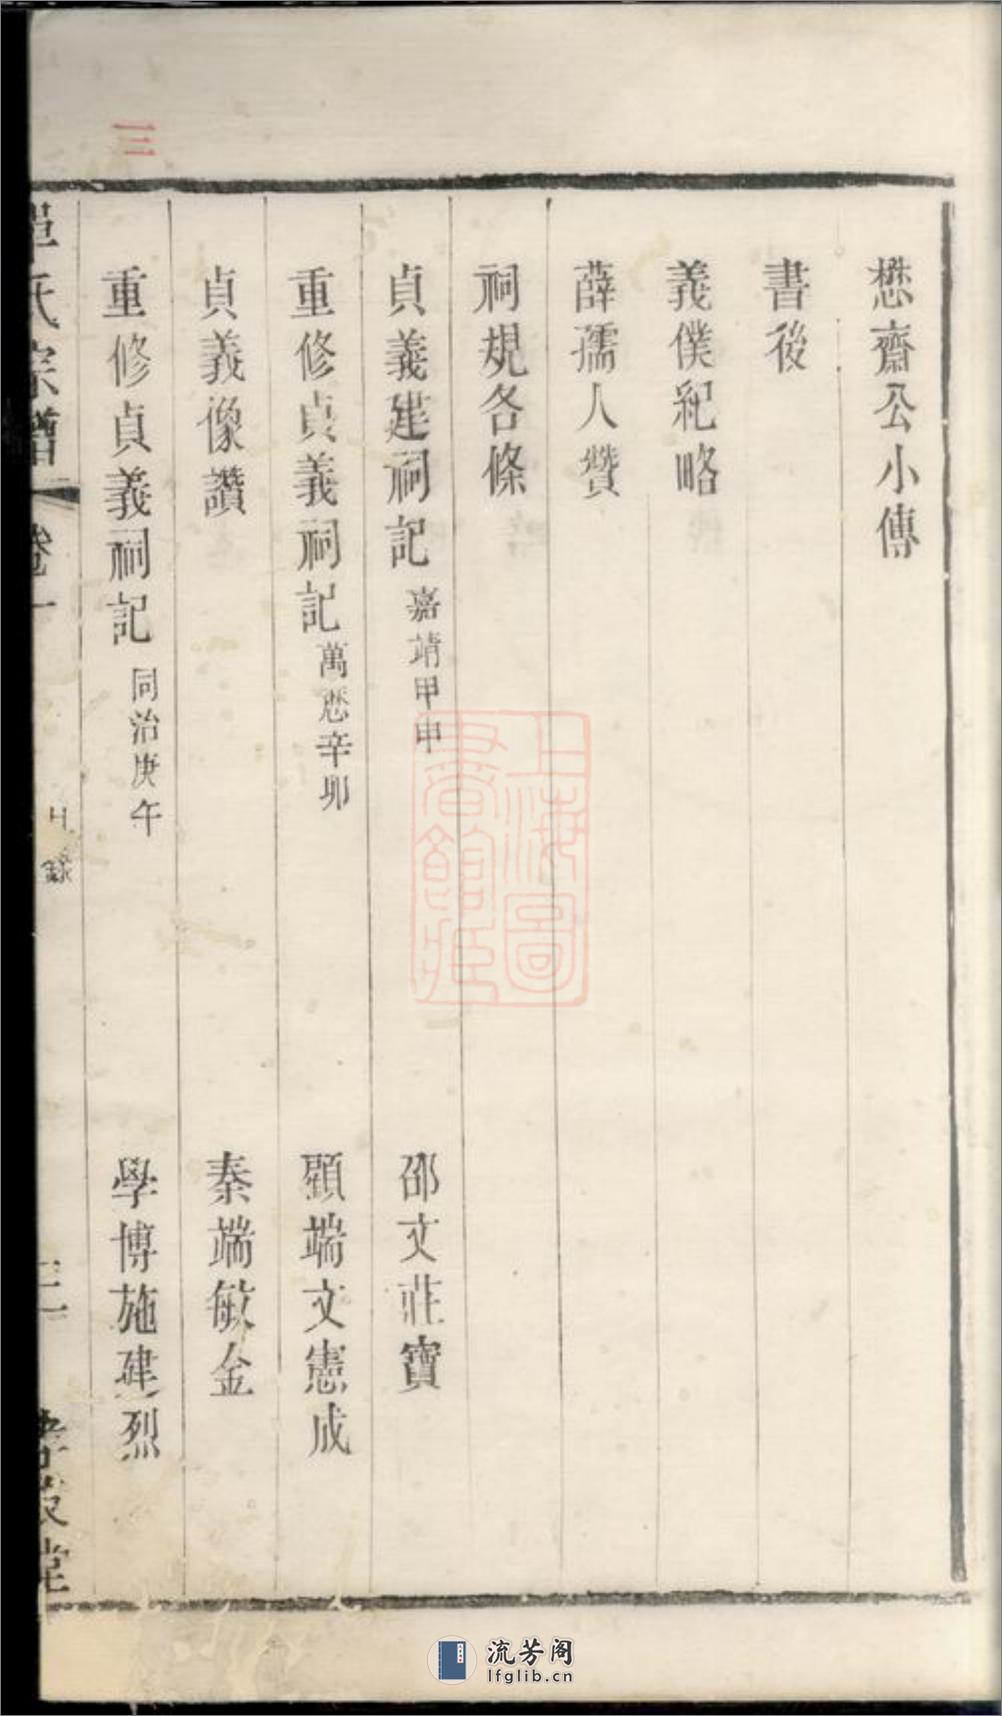 三
懋齋公小傳
書後
義僕紀略
薛孺人贊
祠規各條
貞義建祠記 嘉靖甲申 邵文莊寶
重修貞義祠記 萬歷辛卯 顧端文憲成
貞義像讚 秦端敏金
重修貞義祠記 同治庚午 學博施建烈
氏宗譜 卷一 目錄 堂
上海圖書館藏
流芳阁
lfglib.cn